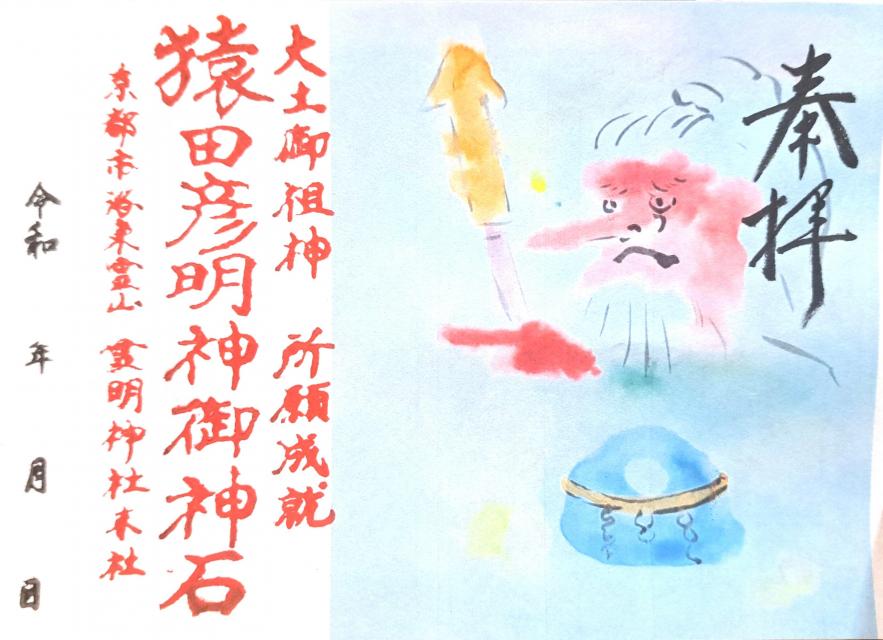 奉拝
大土御祖神 所願成就
猿田彦明神御神石
京都市洛東霊山 霊明神社末社
令和 年 月 日